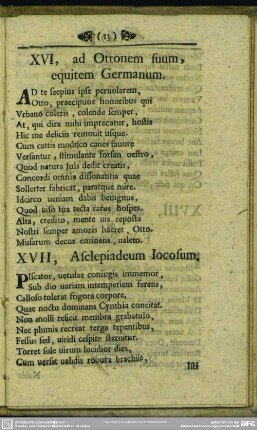 (13)
XVI, ad Ottonem suum,
equitem Germanum.
AD te saepius ipse peruolarem,
Otto, praecipuus honoribus qui
Vrbano coleris, colende semper,
At, qui dira mihi imprecatur, hostis
Hic me deliciis remouit usque.
Cum cattis modico canes fauore
Versantur, stimulante forsan oestro,
Quod natura suis dedit creatis,
Concordi omnia dissonantia quae
Sollerter fabricat, paratque mire.
Idcirco ueniam dabis benignus,
Quod uiso tua tecta rarus hospes.
Alta, credito, mente uis reposta
Nostri semper amoris haeret, Otto.
Musarum decus eminens, ualeto.
XVII, Asclepiadeum Iocosum.
PIscator, uetulae coniugis immemor,
Sub dio uariam intemperiem ferens,
Calloso tolerat frigora corpore,
Quae noctu dominans Cynthia concitat.
Non molli reficit membra grabatulo,
Nec plumis recreat terga tepentibus,
Fessus sed, uiridi cespite sternitur.
Torret sole uirum lucidior dies,
Cum uersat ualidis robora brachiis,